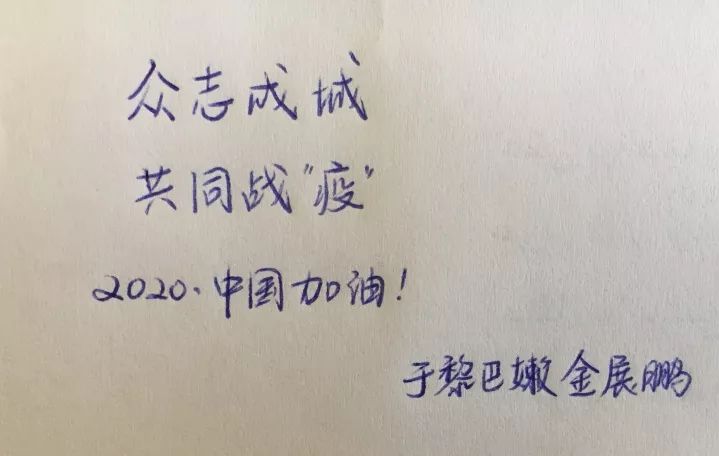 众志成城
共同战"疫"
2020.中国加油！
于黎巴嫩 金展鹏